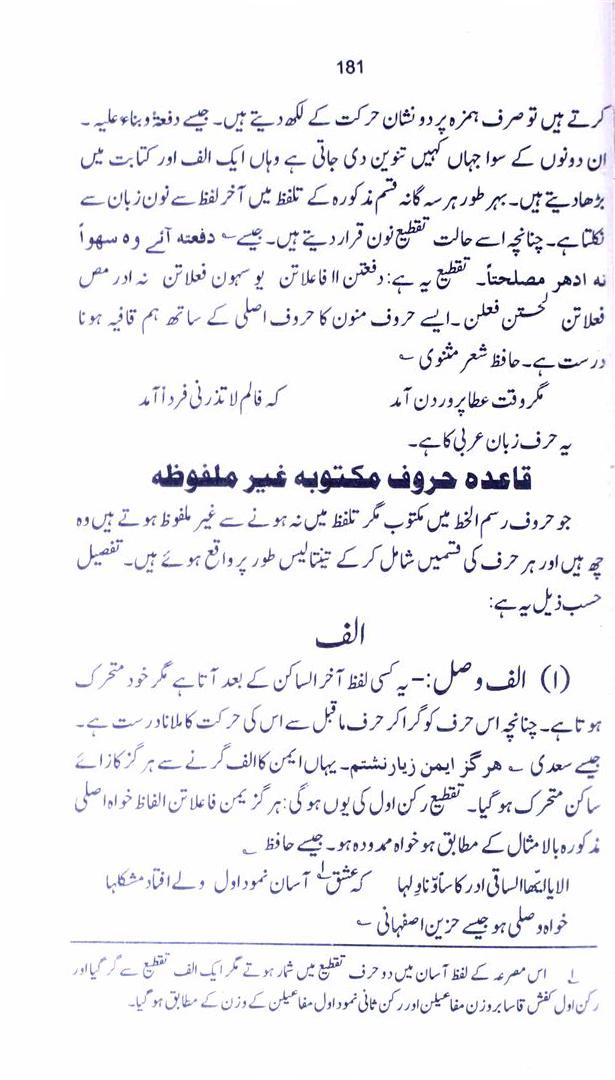 181
کرتے ہیں تو صرف ہمزہ پر دو نشان حرکت کے لکھ دیتے ہیں۔ جیسے دفعۃً و بناءً علیہ۔
ان دونوں کے سوا جہاں کہیں تنوین دی جاتی ہے وہاں ایک الف اور کتابت میں
بڑھا دیتے ہیں۔ بہر طور ہر سہ گانہ قسم مذکورہ کے تلفظ میں آخر لفظ سے نون زبان سے
نکلتا ہے۔ چنانچہ اسے حالت تقطیع نون قرار دیتے ہیں۔ جیسے ؎ دفعتہ آئے وہ سہواً
نہ ادھر مصلحتاً۔ تقطیع یہ ہے: دفعتن اا فاعلاتن یو سہون فعلاتن نہ ادر مص
فعلاتن لحتن فعلن۔ ایسے حروف منون کا حروف اصلی کے ساتھ ہم قافیہ ہونا
درست ہے۔ حافظ شعر مثنوی ؎
مگر وقت عطا پروردن آمد کہ فالم لا تذرنی فرداً آمد
یہ حرف زبان عربی کا ہے۔
قاعدہ حروف مکتوبہ غیر ملفوظہ
جو حروف رسم الخط میں مکتوب مگر تلفظ میں نہ ہونے سے غیر ملفوظ ہوتے ہیں وہ
چھ ہیں اور ہر حرف کی قسمیں شامل کر کے تینتالیس طور پر واقع ہوئے ہیں۔ تفصیل
حسب ذیل یہ ہے:
الف
(۱) الف وصل:– یہ کسی لفظ آخر الساکن کے بعد آتا ہے مگر خود متحرک
ہوتا ہے۔ چنانچہ اس حرف کو گرا کر حرف ماقبل سے اس کی حرکت کا ملانا درست ہے۔
جیسے سعدی ؎ ہرگز ایمن زیار نشتم۔ یہاں ایمن کا الف گرنے سے ہرگز کا زائے
ساکن متحرک ہو گیا۔ تقطیع رکن اول کی یوں ہو گی: ہرگز یمن فاعلاتن الفاظ خواہ اصلی
مذکورہ بالا مثال کے مطابق ہو خواہ ممدودہ ہو۔ جیسے حافظ ؎
الا یا ایہا الساقی ادر کاساً و ناولہا کہ عشق۱ آساں نمود اول ولے افتاد مشکلہا
خواہ وصلی ہو جیسے حزین اصفہانی ؎
۱ اس مصرعہ کے لفظ آسان میں دو حرف تقطیع میں شمار ہوتے مگر ایک الف تقطیع سے گر گیا اور
رکن اول کعشق اسا بروزن مفاعیلن اور رکن ثانی نمود اول مفاعیلن کے وزن کے مطابق ہو گیا۔